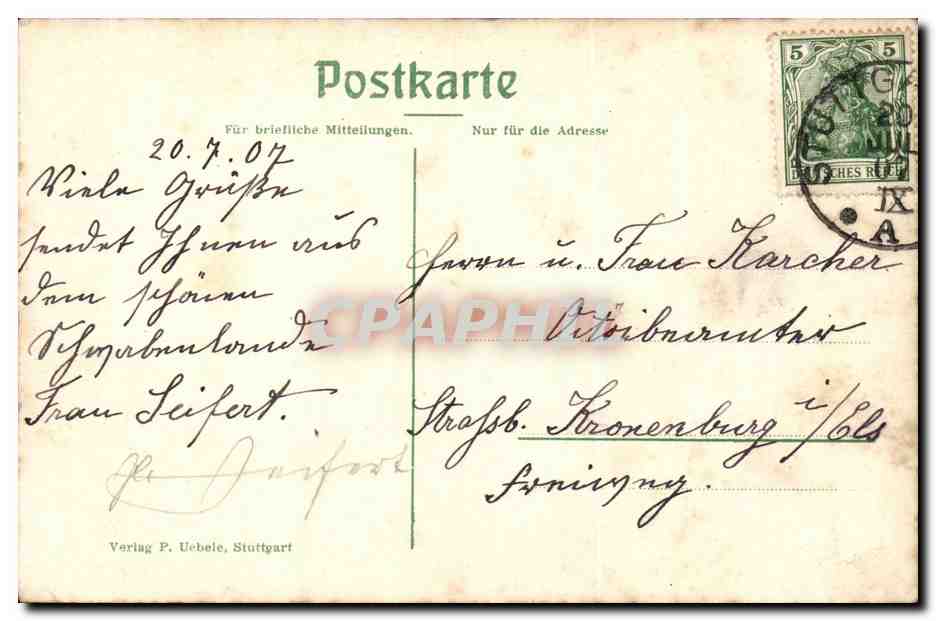 Postkarte
Für briefliche Mitteilungen.
Nur für die Adresse
20.7.07
Viele Grüße
sendet Ihnen aus
dem schönen
Schwabenlande
Frau Seifert.
Seifert
Verlag P. Uebele, Stuttgart
5 5
DEUTSCHES REICH
STUTTGA
20
JUL
07
IX
A
Herrn u. Frau Karcher
Strassb. Kronenburg i/Els
Freiweg.
CPAPHIL